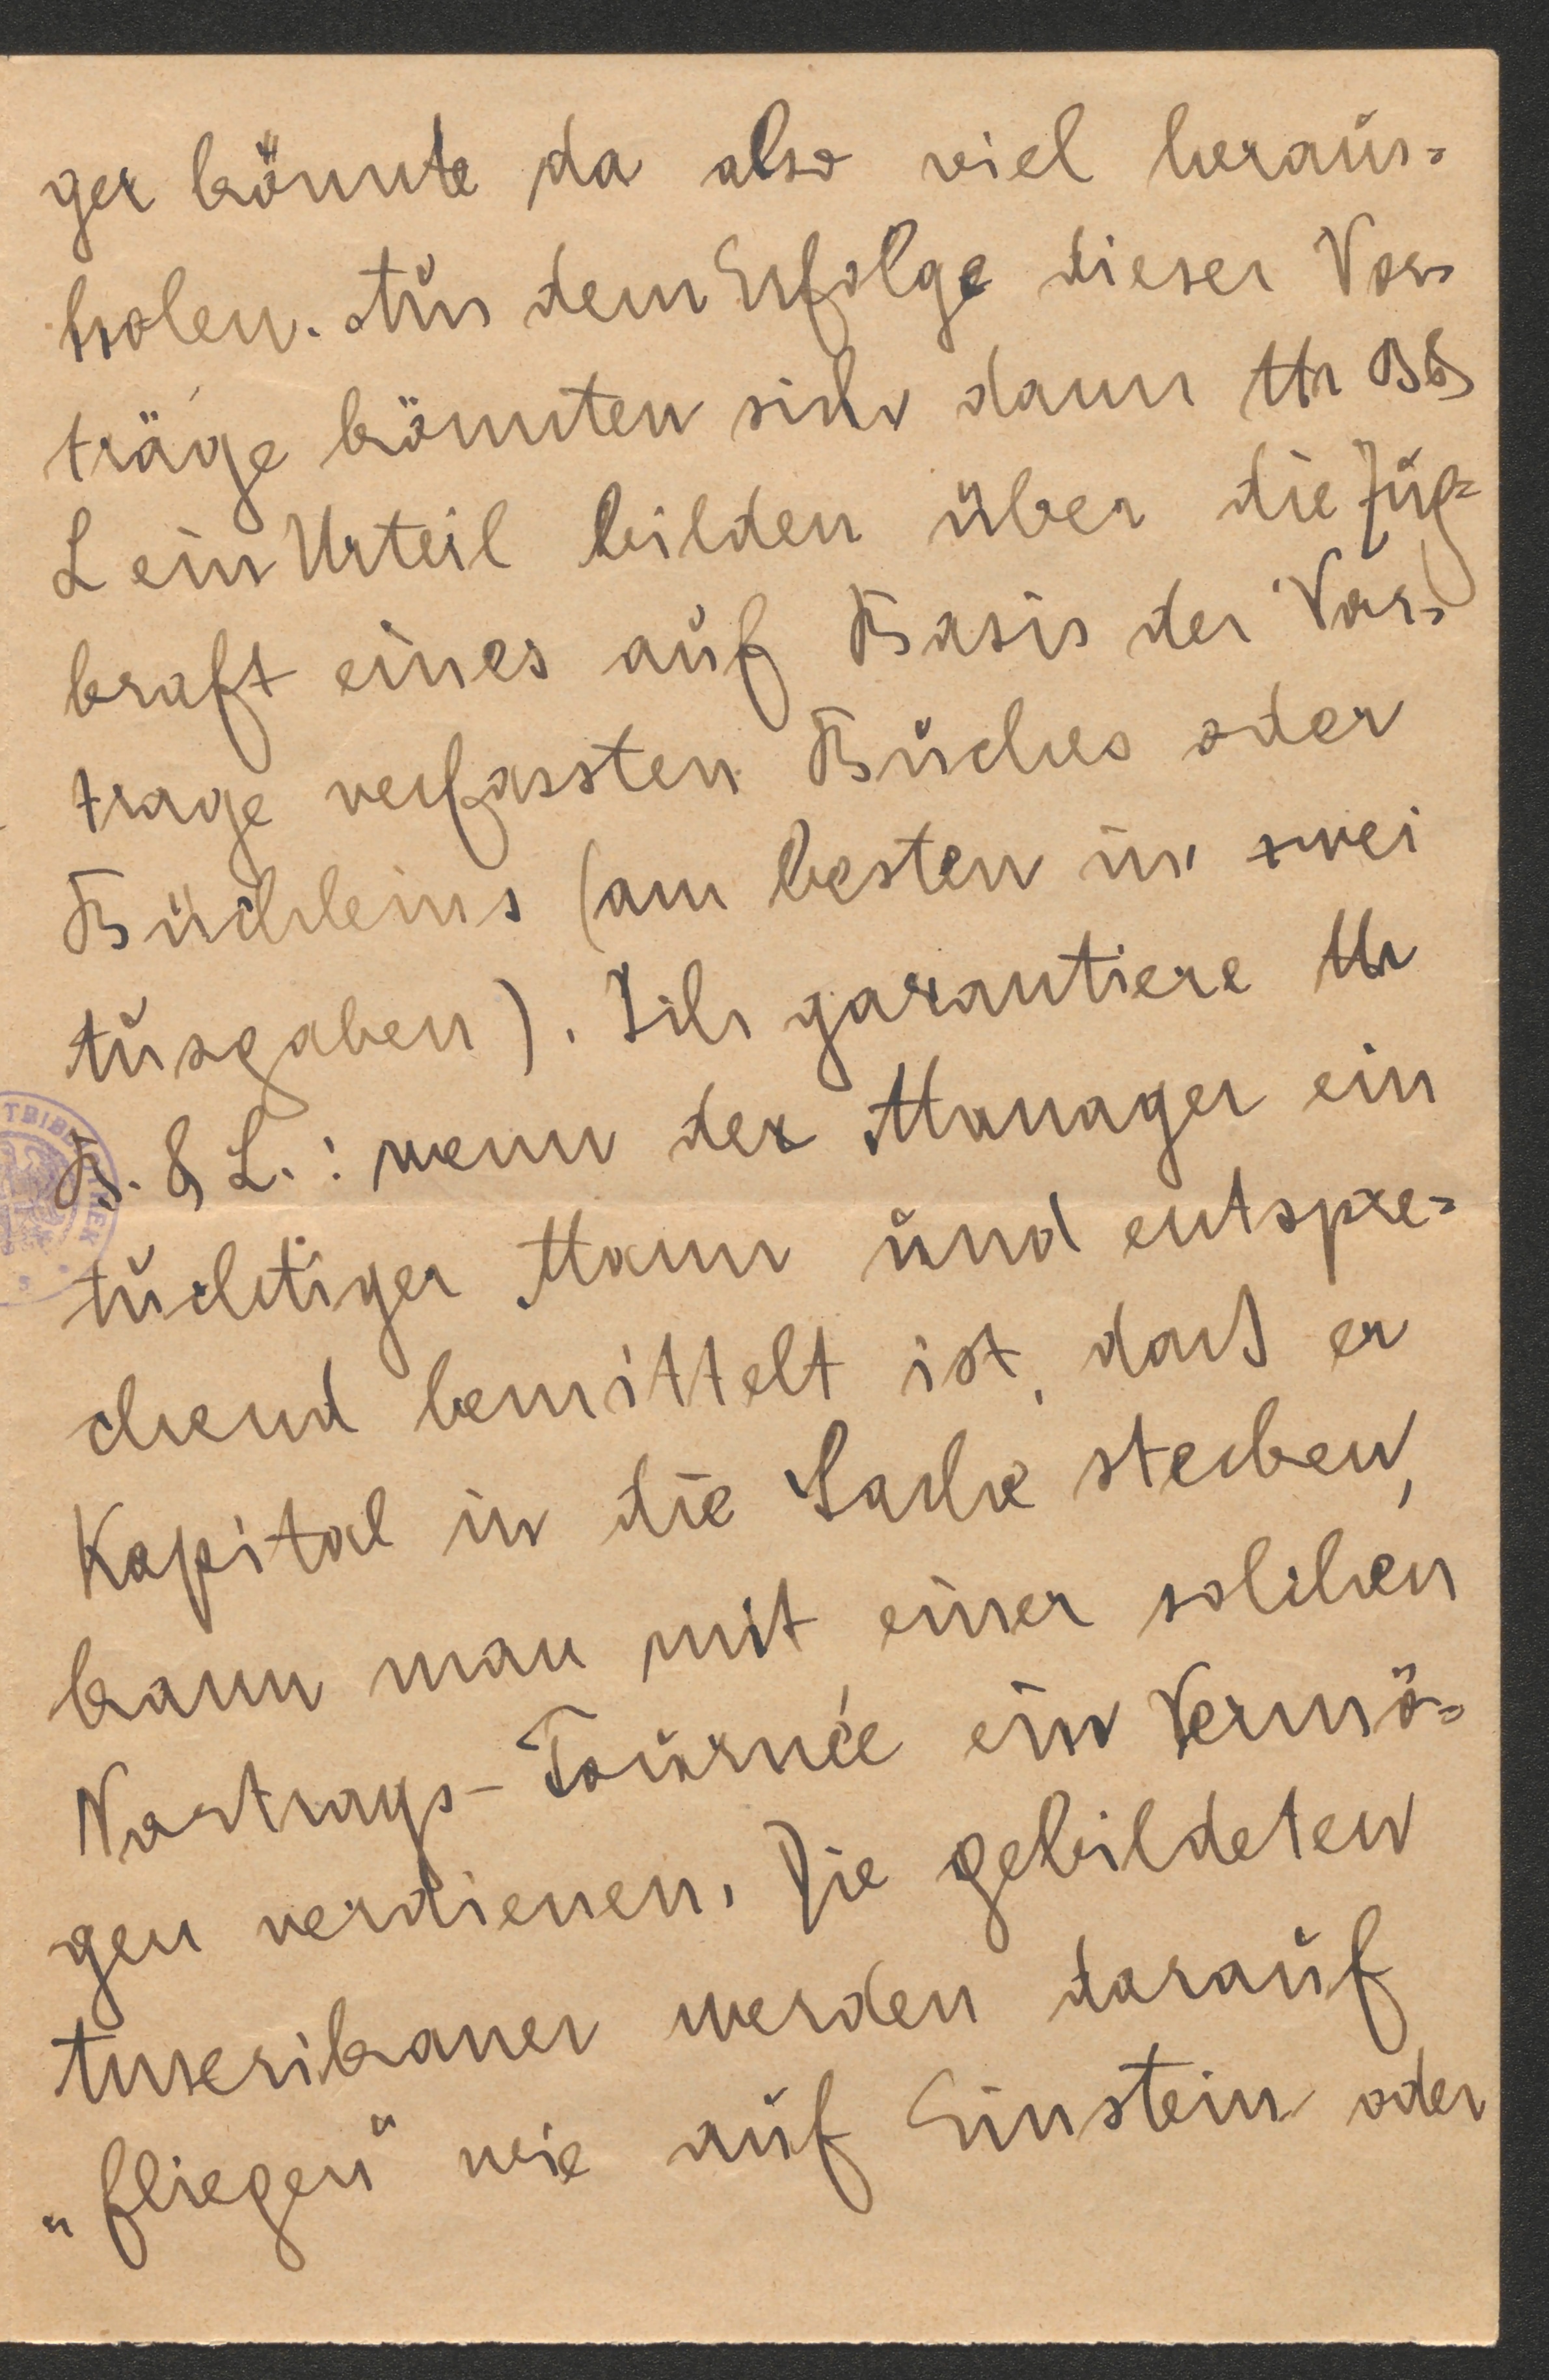 ger könnte da also viel heraus-
holen. Aus dem Erfolge dieser Vor-
träge könnten sich dann Mr B&
L ein Urteil bilden über die Zug-
kraft eines auf Basis der Vor-
trage verfassten Buches oder
Büchleins (am besten in zwei
Ausgaben). Ich garantiere Mr
B. & L.: wenn der Manager ein
tüchtiger Mann und entspre-
chend bemittelt ist, daß er
Kapital in die Sache stecken,
kann man mit einer solchen
Vortrags-Tournée ein Vermö-
gen verdienen. Die gebildeten
Amerikaner werden darauf
„fliegen“ wie auf Einstein oder